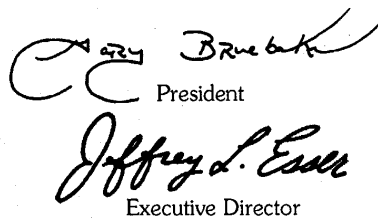 Cary Bruebaker
President
Jeffrey L. Esser
Executive Director